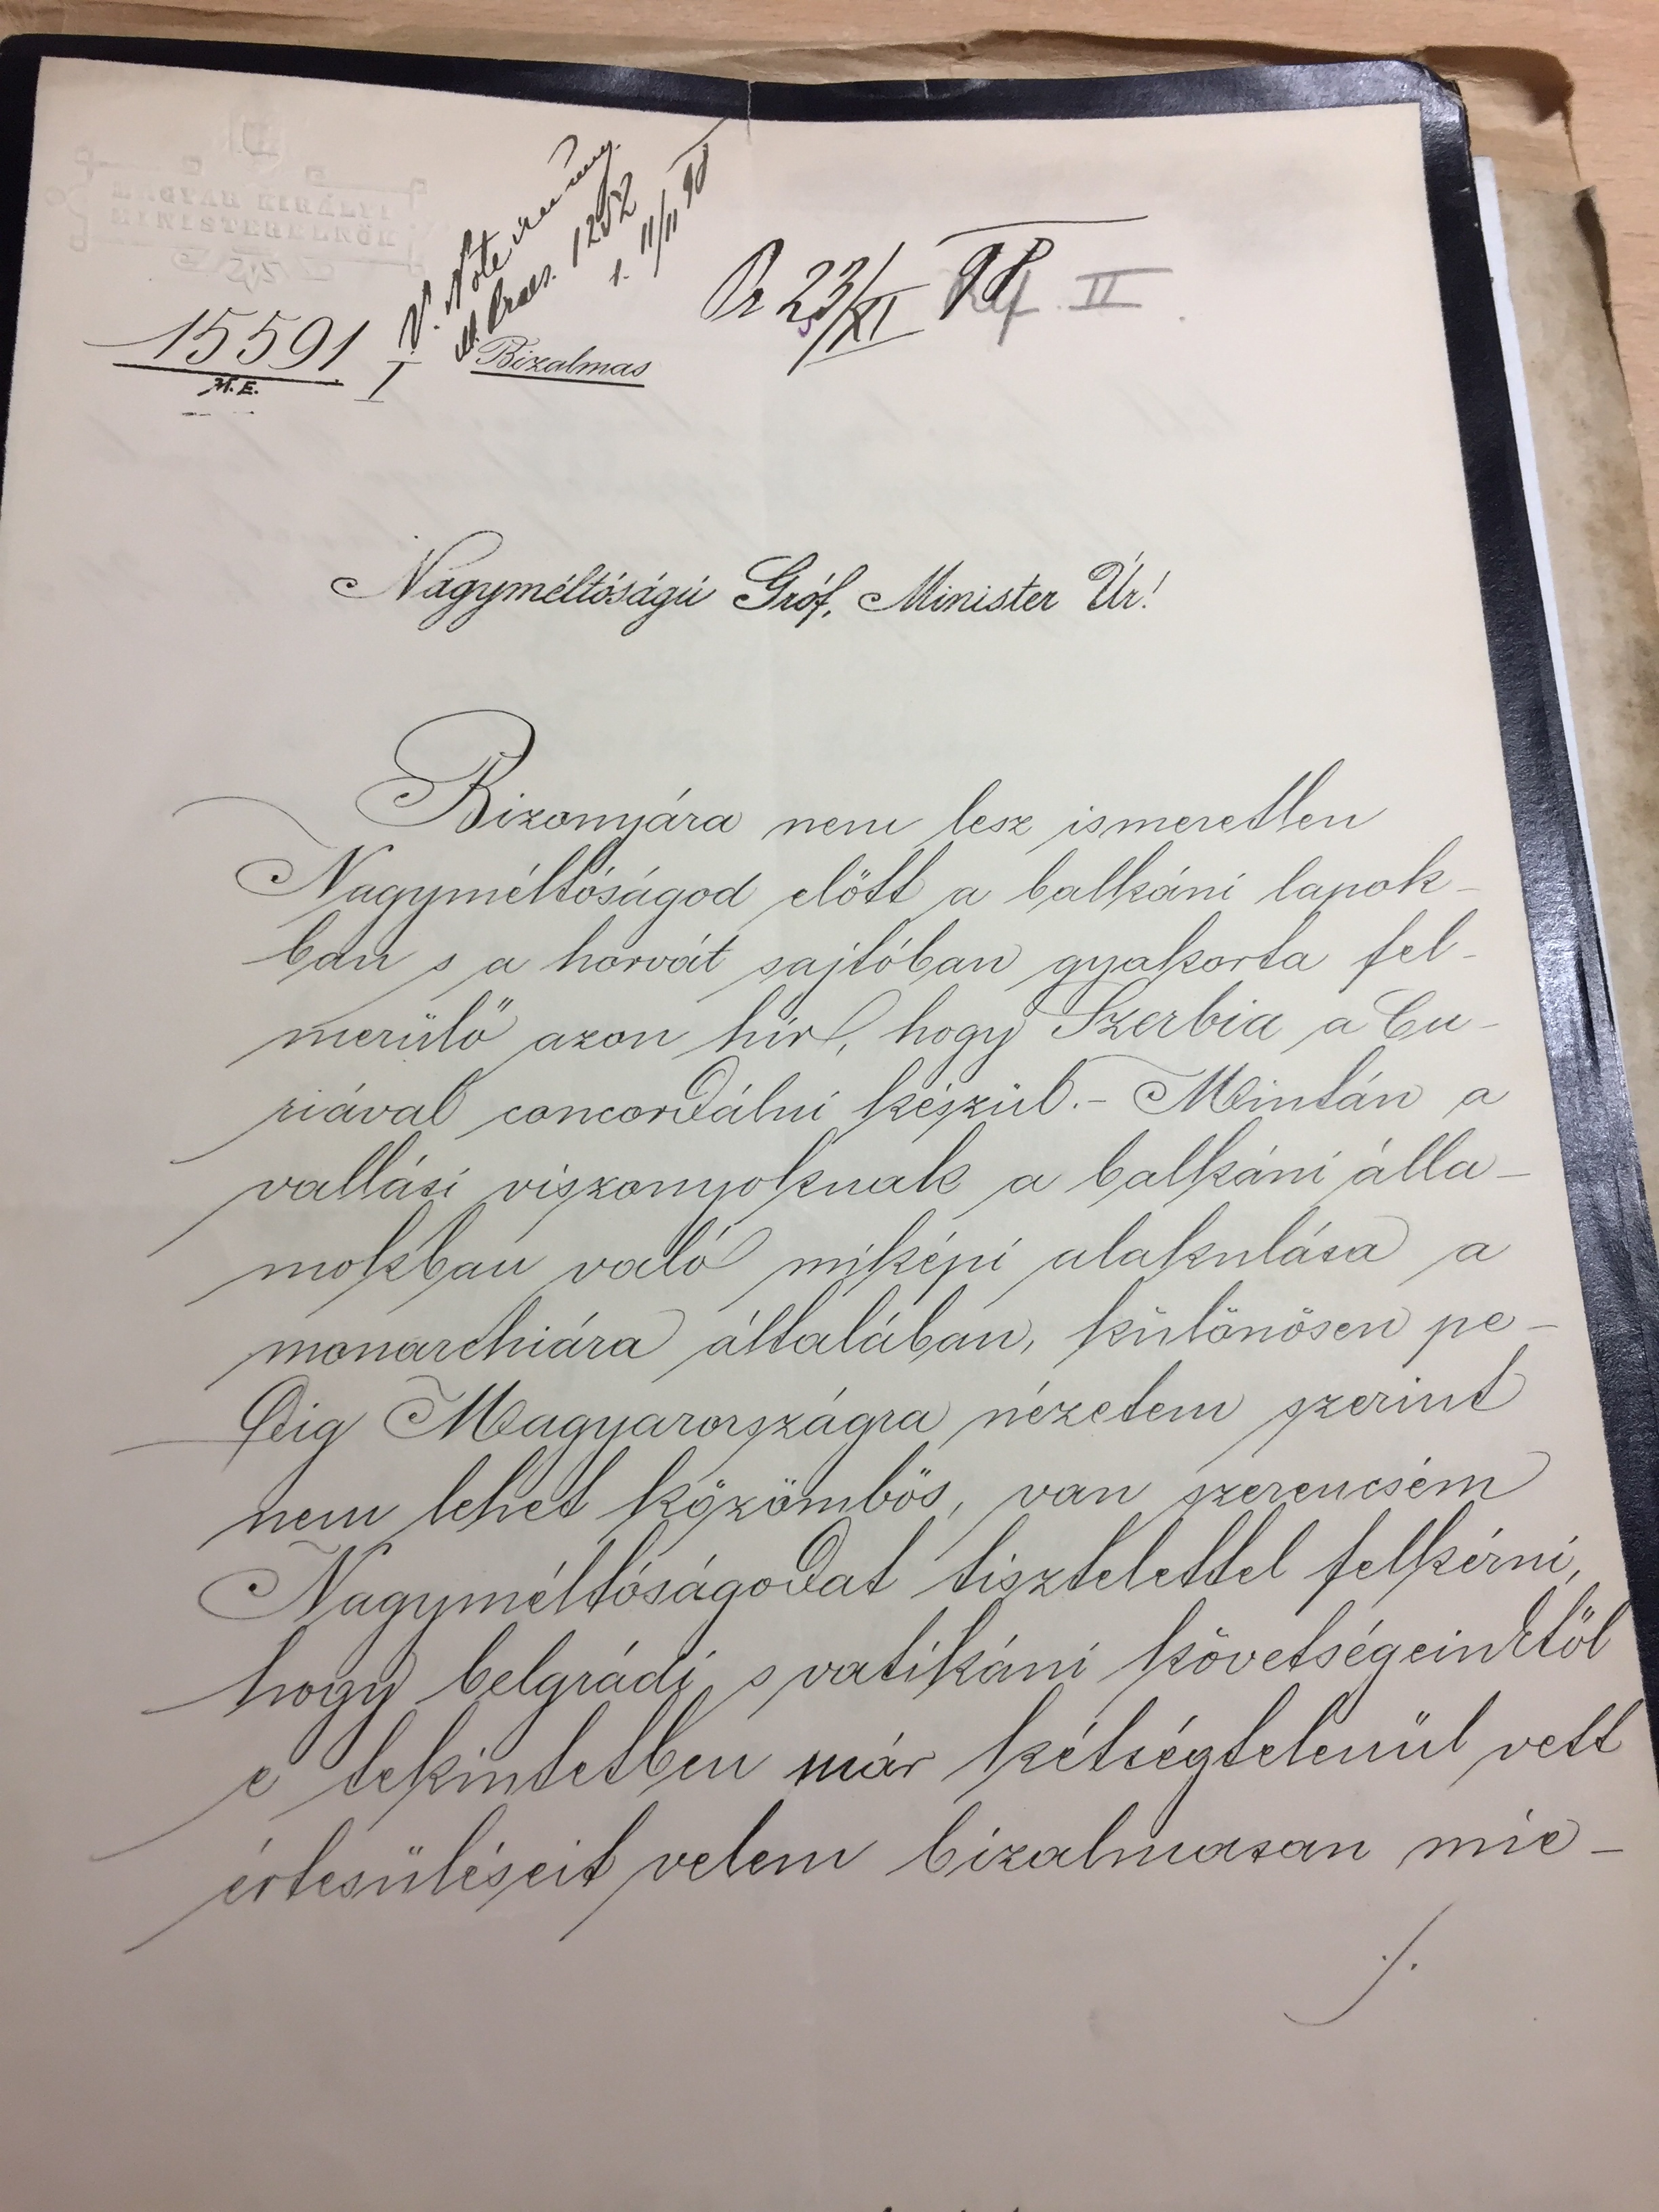 MAGYAR KIRÁLYI
MINISTERELNÖK
V. Note
Praes. 1252
1. 11/11 98
Pr 23/XI 98
Ref. II
15591
M.E.
I
Bizalmas
Nagyméltóságú Gróf, Minister Úr!
Bizonyára nem lesz ismeretlen
Nagyméltóságod előtt a balkáni lapok-
ban s a horvát sajtóban gyakorta fel-
merülő azon hír, hogy Szerbia a Cu-
riával concordálni készül. - Mintán a
vallási viszonyoknak a balkáni álla-
mokban való miképi alakulása a
monarchiára általában, különösen pe-
dig Magyarországra nézetem szerint
nem lehet közömbös, van szerencsém
Nagyméltóságodat tisztelettel felkérni,
hogy belgrádi s vatikáni követségeinktől
e tekintetben már kétségtelenül vett
értesüléseit velem bizalmasan mie-
./.